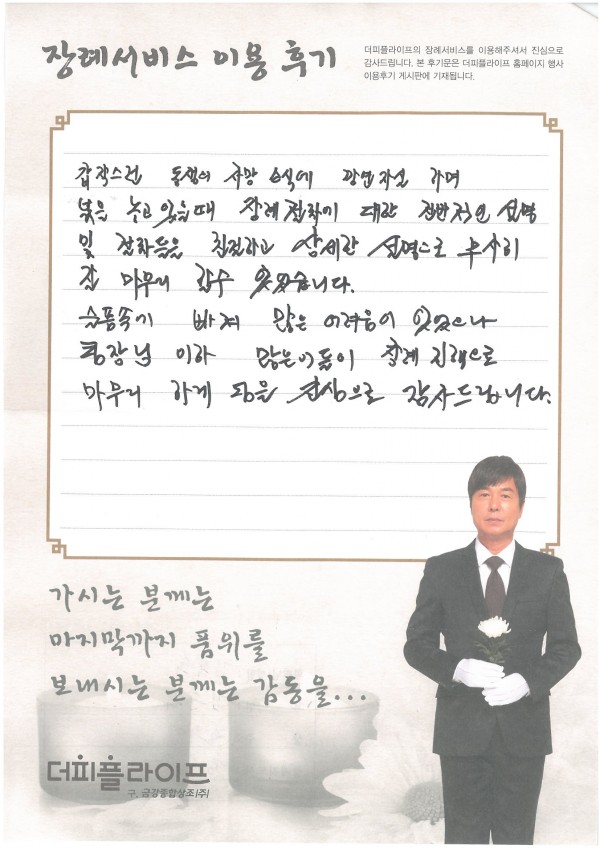 장례서비스 이용 후기
더피플라이프의 장례서비스를 이용해주셔서 진심으로
감사드립니다. 본 후기문은 더피플라이프 홈페이지 행사
이용후기 게시판에 기재됩니다.
갑작스런 동생의 사망 소식에 망연자실 하며
넋을 놓고 있을때 장례절차에 대한 전반적인 설명
및 절차들을 친절하고 상세한 설명으로 무사히
잘 마무리 할수 있었습니다.
슬픔속에 빠져 많은 어려움이 있었으나
팀장님 이하 많은이들이 장례 진행으로
마무리 하게 됨을 진심으로 감사드립니다.
가시는 분께는
마지막까지 품위를
보내시는 분께는 감동을...
더피플라이프
구. 금강종합상조(주)